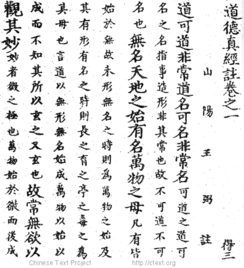 道德真經註卷之一
得三
山陽王弼註
道可道非常道名可名非常名可道之道可
名之名指事造形非其常也故不可道不可
名也無名天地之始有名萬物之母凡有皆
始於無故未形無名之時則為萬物之始及
其有形有名之時則長之育之亭之毒之為
其母也言道以無形無名始成萬物以始以
成而不知其所以玄之又玄也故常無欲以
觀其妙妙者微之極也萬物始於微而後成
Chinese Text Project
http://ctext.org